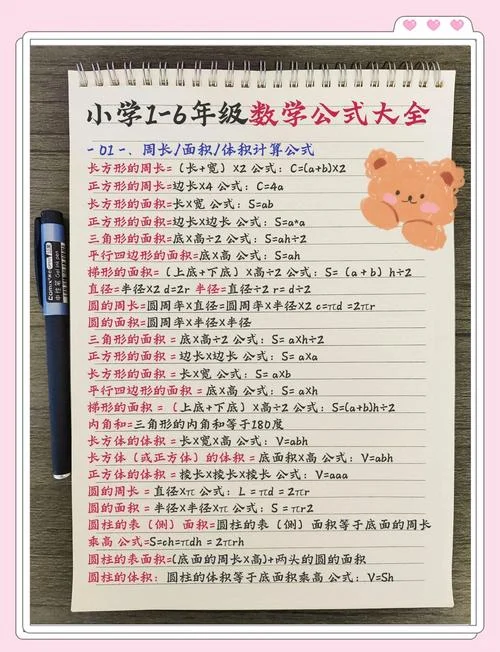 小学1-6年级数学公式大全
-01-、周长/面积/体积计算公式
长方形的周长=（长+宽）X2 公式：C=(a+b)X2
正方形的周长=边长X4 公式：C=4a
长方形的面积=长X宽 公式：S=ab
正方形的面积=边长X边长 公式：S=a*a
三角形的面积=底X高÷2 公式：S=ah÷2
平行四边形的面积=底X高 公式：S=ah
梯形的面积=（上底+下底）X高÷2 公式：S=（a+b）h÷2
直径=半径X2 d=2r 半径=直径÷2 r= d÷2
圆的周长=圆周率X直径=圆周率X半径X2 c=πd =2πr
圆的面积=圆周率X半径X半径
三角形的面积 = 底X高÷2 公式：S= aXh÷2
正方形的面积 = 边长X边长 公式：S= aXa
长方形的面积 = 长X宽 公式：S= aXb
平行四边形的面积 = 底X高 公式：S= aXh
梯形的面积 =（上底+下底）X高÷2 公式：S=(a+b)h÷2
内角和=三角形的内角和等于180度
长方体的体积 = 长X宽X高 公式：V=abh
长方体（或正方体）的体积 = 底面积X高 公式：V=abh
正方体的体积 = 棱长X棱长X棱长 公式：V=aaa
圆的周长 = 直径Xπ 公式：L = πd = 2πr
圆的面积 = 半径X半径Xπ 公式：S = πr2
圆柱的表（侧）面积=圆柱的表（侧）面积等于底面的周长
乘高 公式:=S=ch=πdh =2πrh
圆柱的表面积=(底面的周长X高)+两头的圆的面积
圆柱的体积：圆柱的体积等于底面积乘高 公式：V=Sh
Comix
Gel ink pen
中性笔